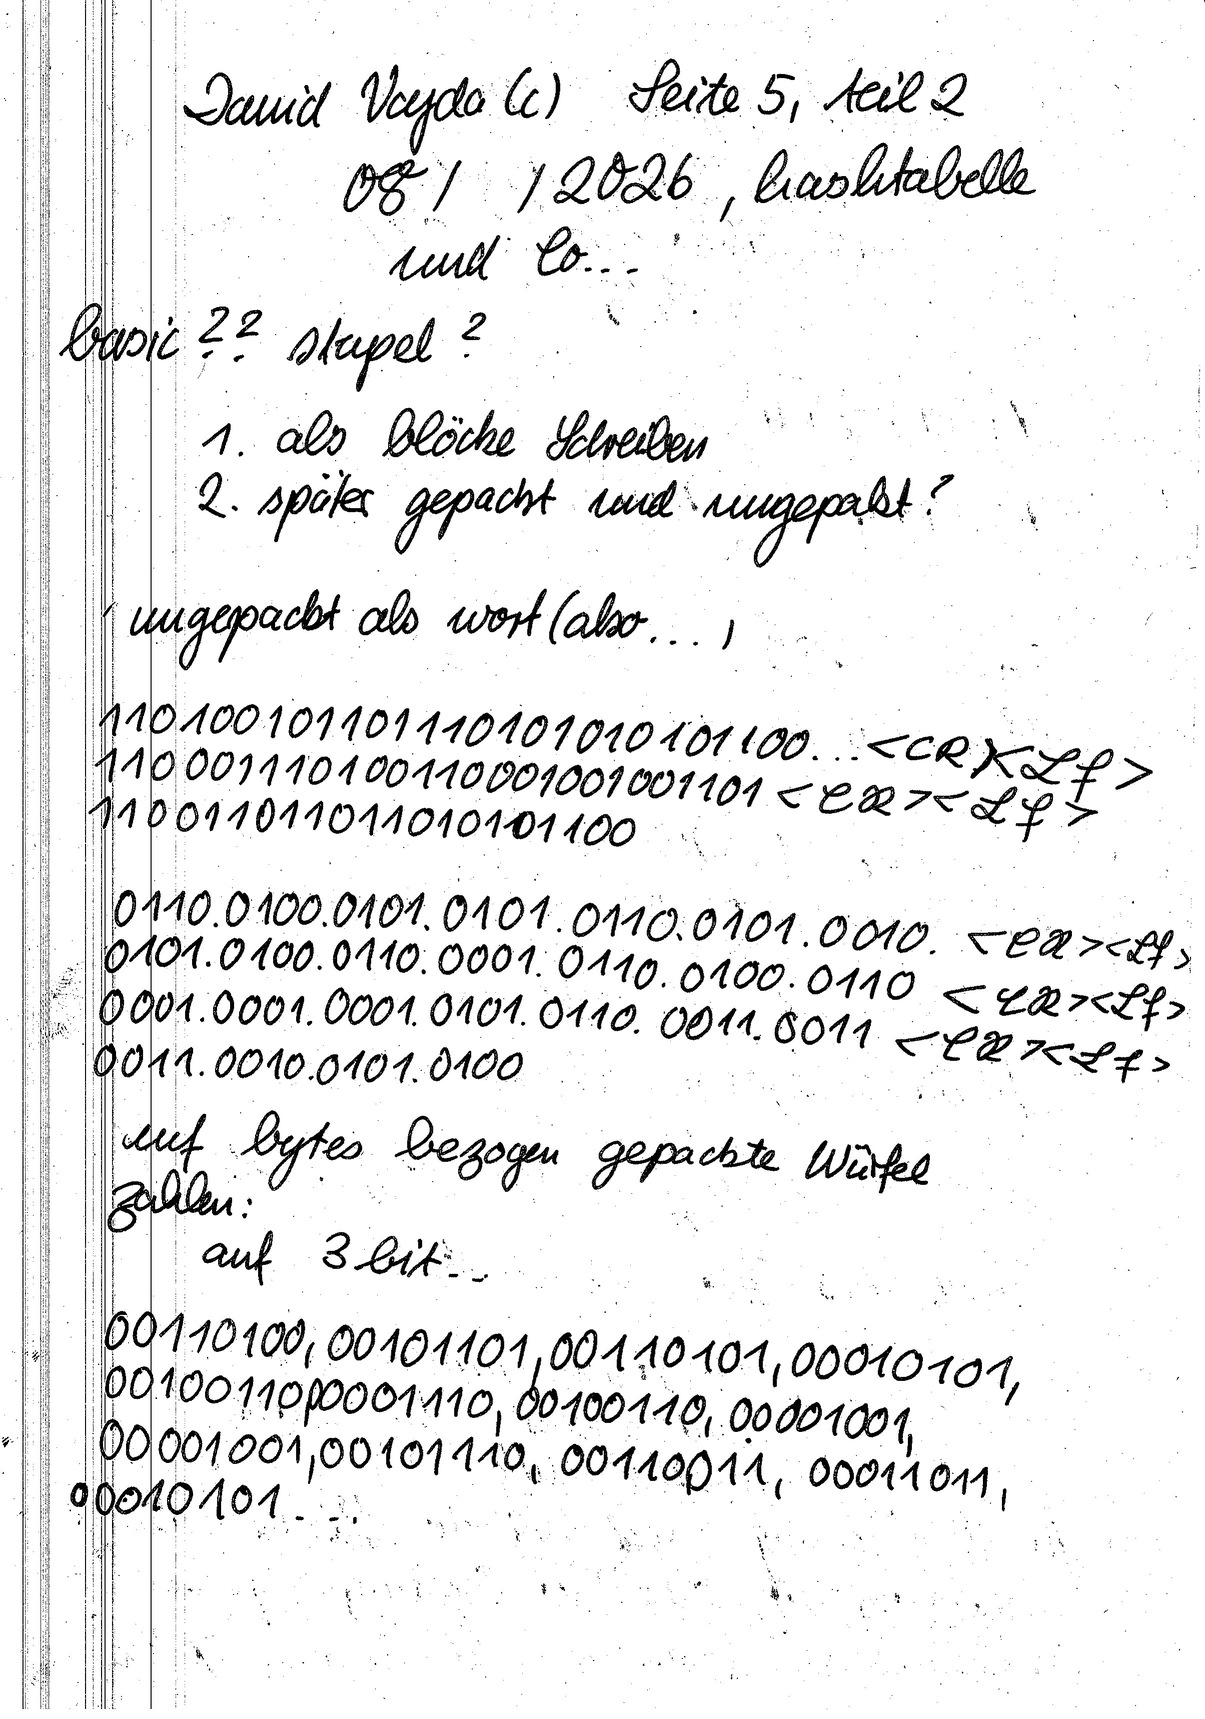 David Vajda (c) Seite 5, teil 2
08/ /2026, hashtabelle
und Co...
basic ?? stapel ?
1. als blöcke schreiben
2. später gepackt und ungepakt?
ungepackt als wort (also...)
110100101101110101010101100...<CR><Lf>
11000111010011000100100 1101<CR><Lf>
11001101101101010101100
0110.0100.0101.0101.0110.0101.0010. <CR><Lf>
0101.0100.0110.0001.0110.0100.0110 <CR><Lf>
0001.0001.0001.0101.0110.0011.0011 <CR><Lf>
0011.0010.0101.0100
auf bytes bezogen gepackte Würfel
zahlen:
auf 3 bit...
00110100,00101101,00110101,00010101,
00100110,00001110,00100110,00001001,
00001001,00101110,00110011,00011011,
00010101...